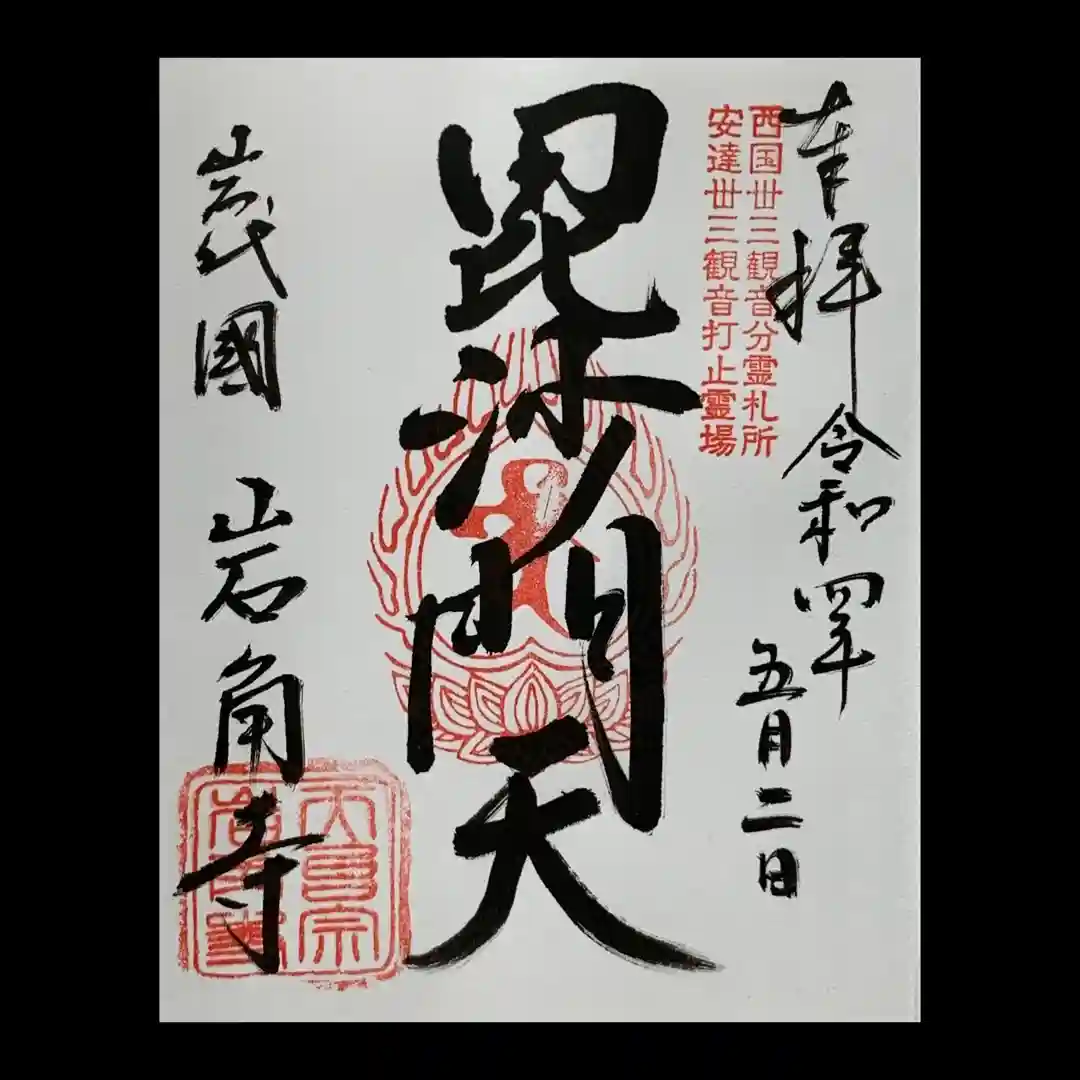 奉拝 令和四年
五月二日
西国丗三観音分霊札所
安達丗三観音打止霊場
毘沙門天
岩代國 岩角寺
天台宗
岩角寺